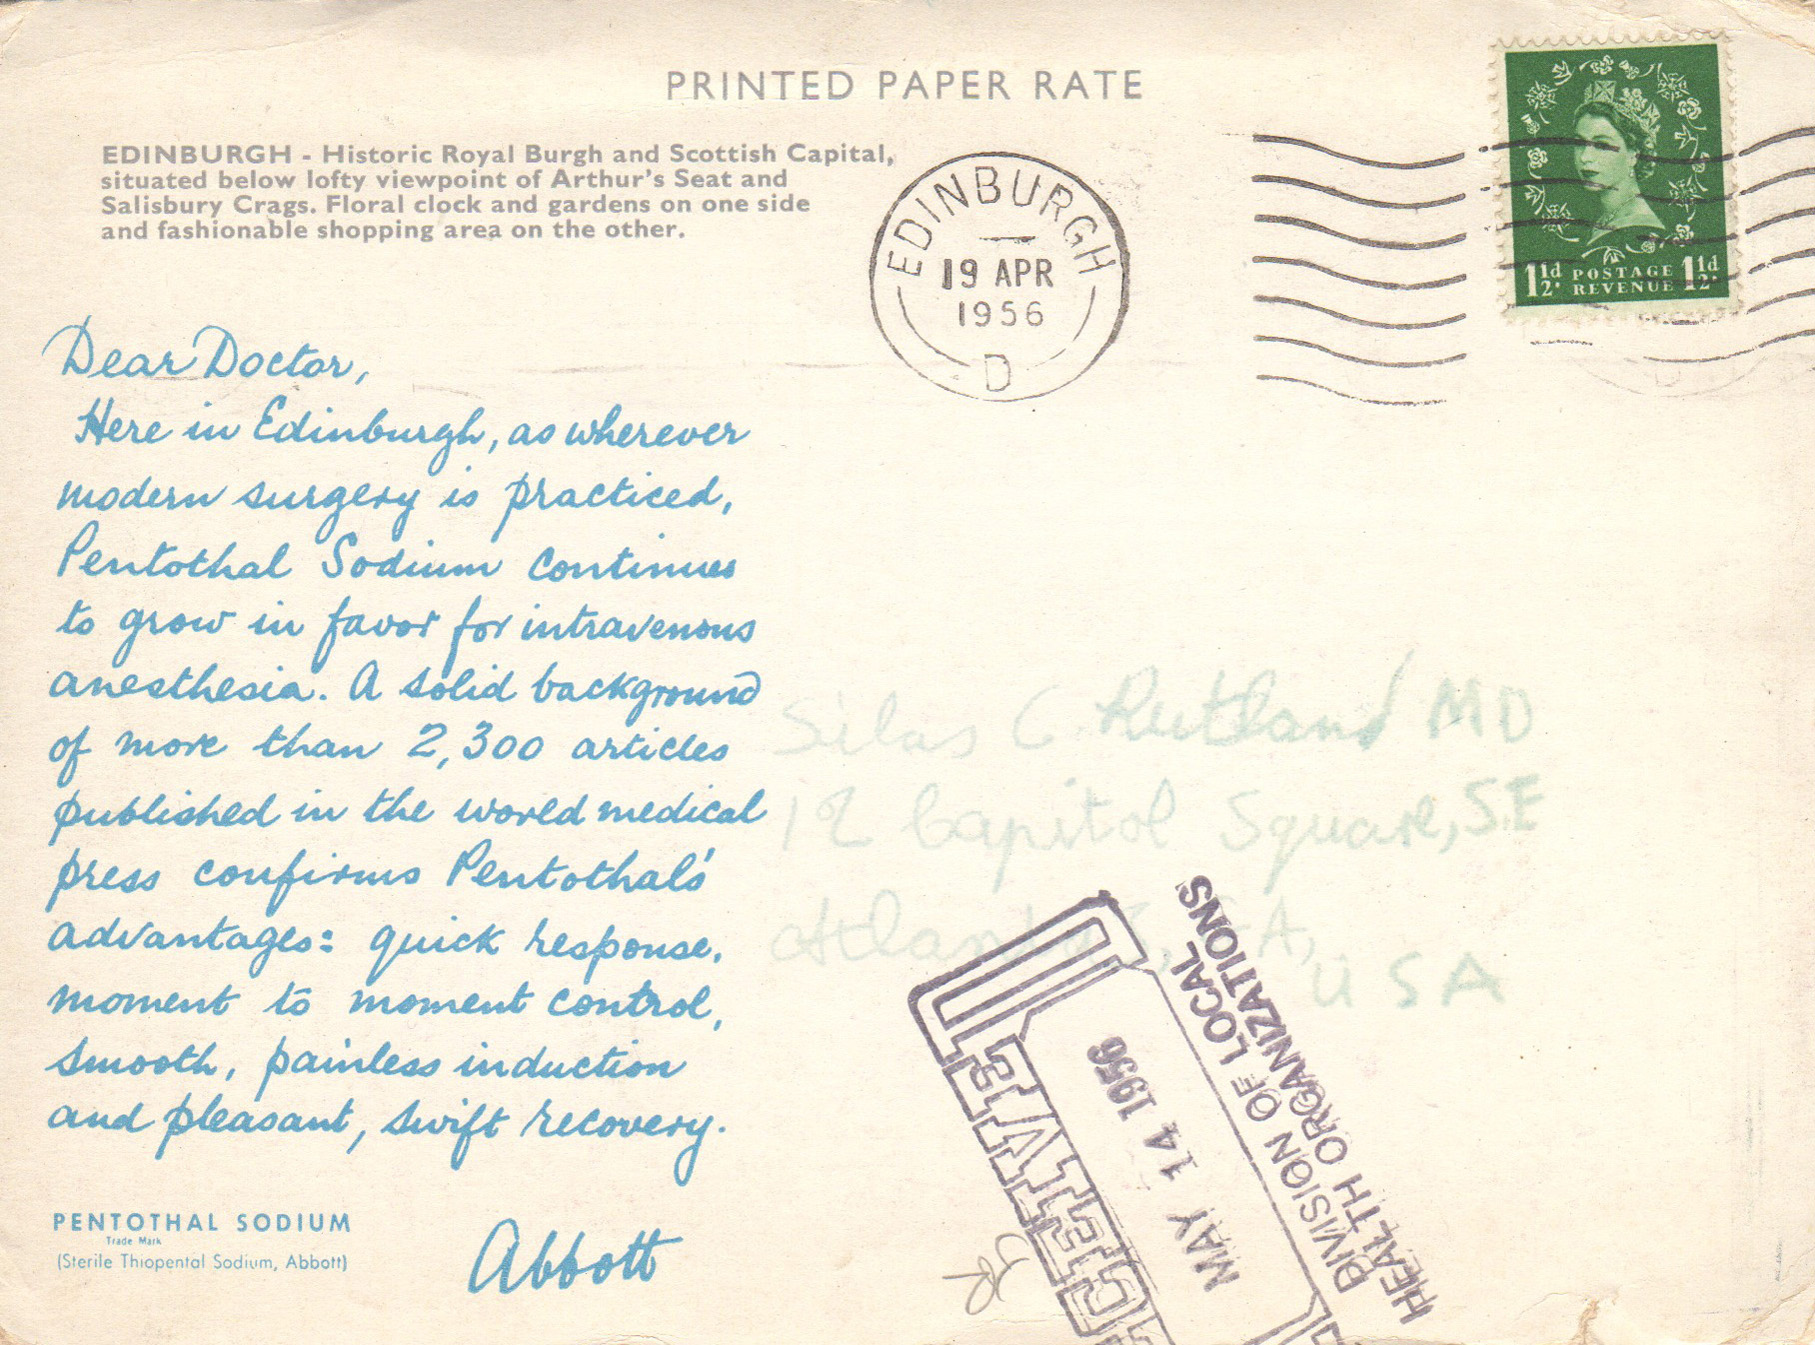 PRINTED PAPER RATE
EDINBURGH - Historic Royal Burgh and Scottish Capital,
situated below lofty viewpoint of Arthur's Seat and
Salisbury Crags. Floral clock and gardens on one side
and fashionable shopping area on the other.
EDINBURGH
19 APR
1956
D
1½d. POSTAGE REVENUE 1½d.
Dear Doctor,
Here in Edinburgh, as wherever
modern surgery is practiced,
Pentothal Sodium continues
to grow in favor for intravenous
anesthesia. A solid background
of more than 2,300 articles
published in the world medical
press confirms Pentothal's
advantages: quick response,
moment to moment control,
smooth, painless induction
and pleasant, swift recovery.
PENTOTHAL SODIUM
Trade Mark
(Sterile Thiopental Sodium, Abbott)
Abbott
Silas C. Rutland MD
12 Capitol Square, S.E
Atlanta 3, GA,
USA
MAY 14 1956
DIVISION OF LOCAL
HEALTH ORGANIZATIONS